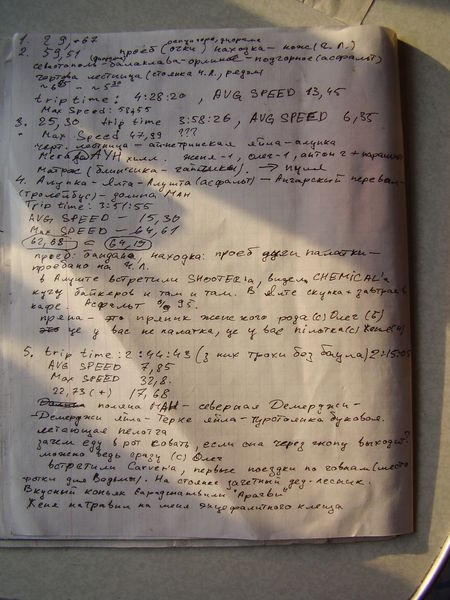 1. 29,+67
панорама, диорама
2. 59,51 (диорама) проёб (очки) находка - нож (Ч.Л.)
севастополь - балаклава - орлиное - подгорное (асфальт)
чортова лестница (стоянка Ч.Л., рядом)
trip time: 4:28:20 , AVG SPEED 13,45
Max Speed: 58,55
3. 25,30 trip time 3:58:26, AVG SPEED 6,35
Max Speed 47,99 ???
черт. лестница - айпетринская яйла - алупка
женя-1, олег-1, антон 2 +
Матрас
4. Алупка - Ялта - Алушта (асфальт) - Ангарский перевал -
(тролейбус) - долина МАН
Trip time: 3:51:55
AVG SPEED - 15,30
Max SPEED - 64,61
62,68 = 64,19
проёб: бандана, находка: проёб дуги палатки -
проёбано на Ч.Л.
в Алуште встретили SHOOTER'а, видели CHEMICAL'а
кучу байкеров и там и там. В Ялте скупка + завтрак в
кафе. Асфальт 95.
пряна - это пряник женского рода (с) Олег (Б)
це у вас не палатка, це у вас пілотка (с) Женя
5. trip time: 2:44:43 (з них трохи без баула) 2:15:05
AVG SPEED 7,85
Max SPEED 32,8
22,73 (+) 17,68
поляна МАН - северная Демерджи -
Демерджи яйла - Терке яйла - Буковая.
летающая пелотка
зачем еду в рот ковать, если она через жопу выходит?
можно ведь сразу (с) Олег
встретили Carver'а, первые поездки по говнам (место
. На стоянке зачётный дед - лесник.
Вкусный коньяк "Арагви"
Женя натравил на меня энцефалитного клеща